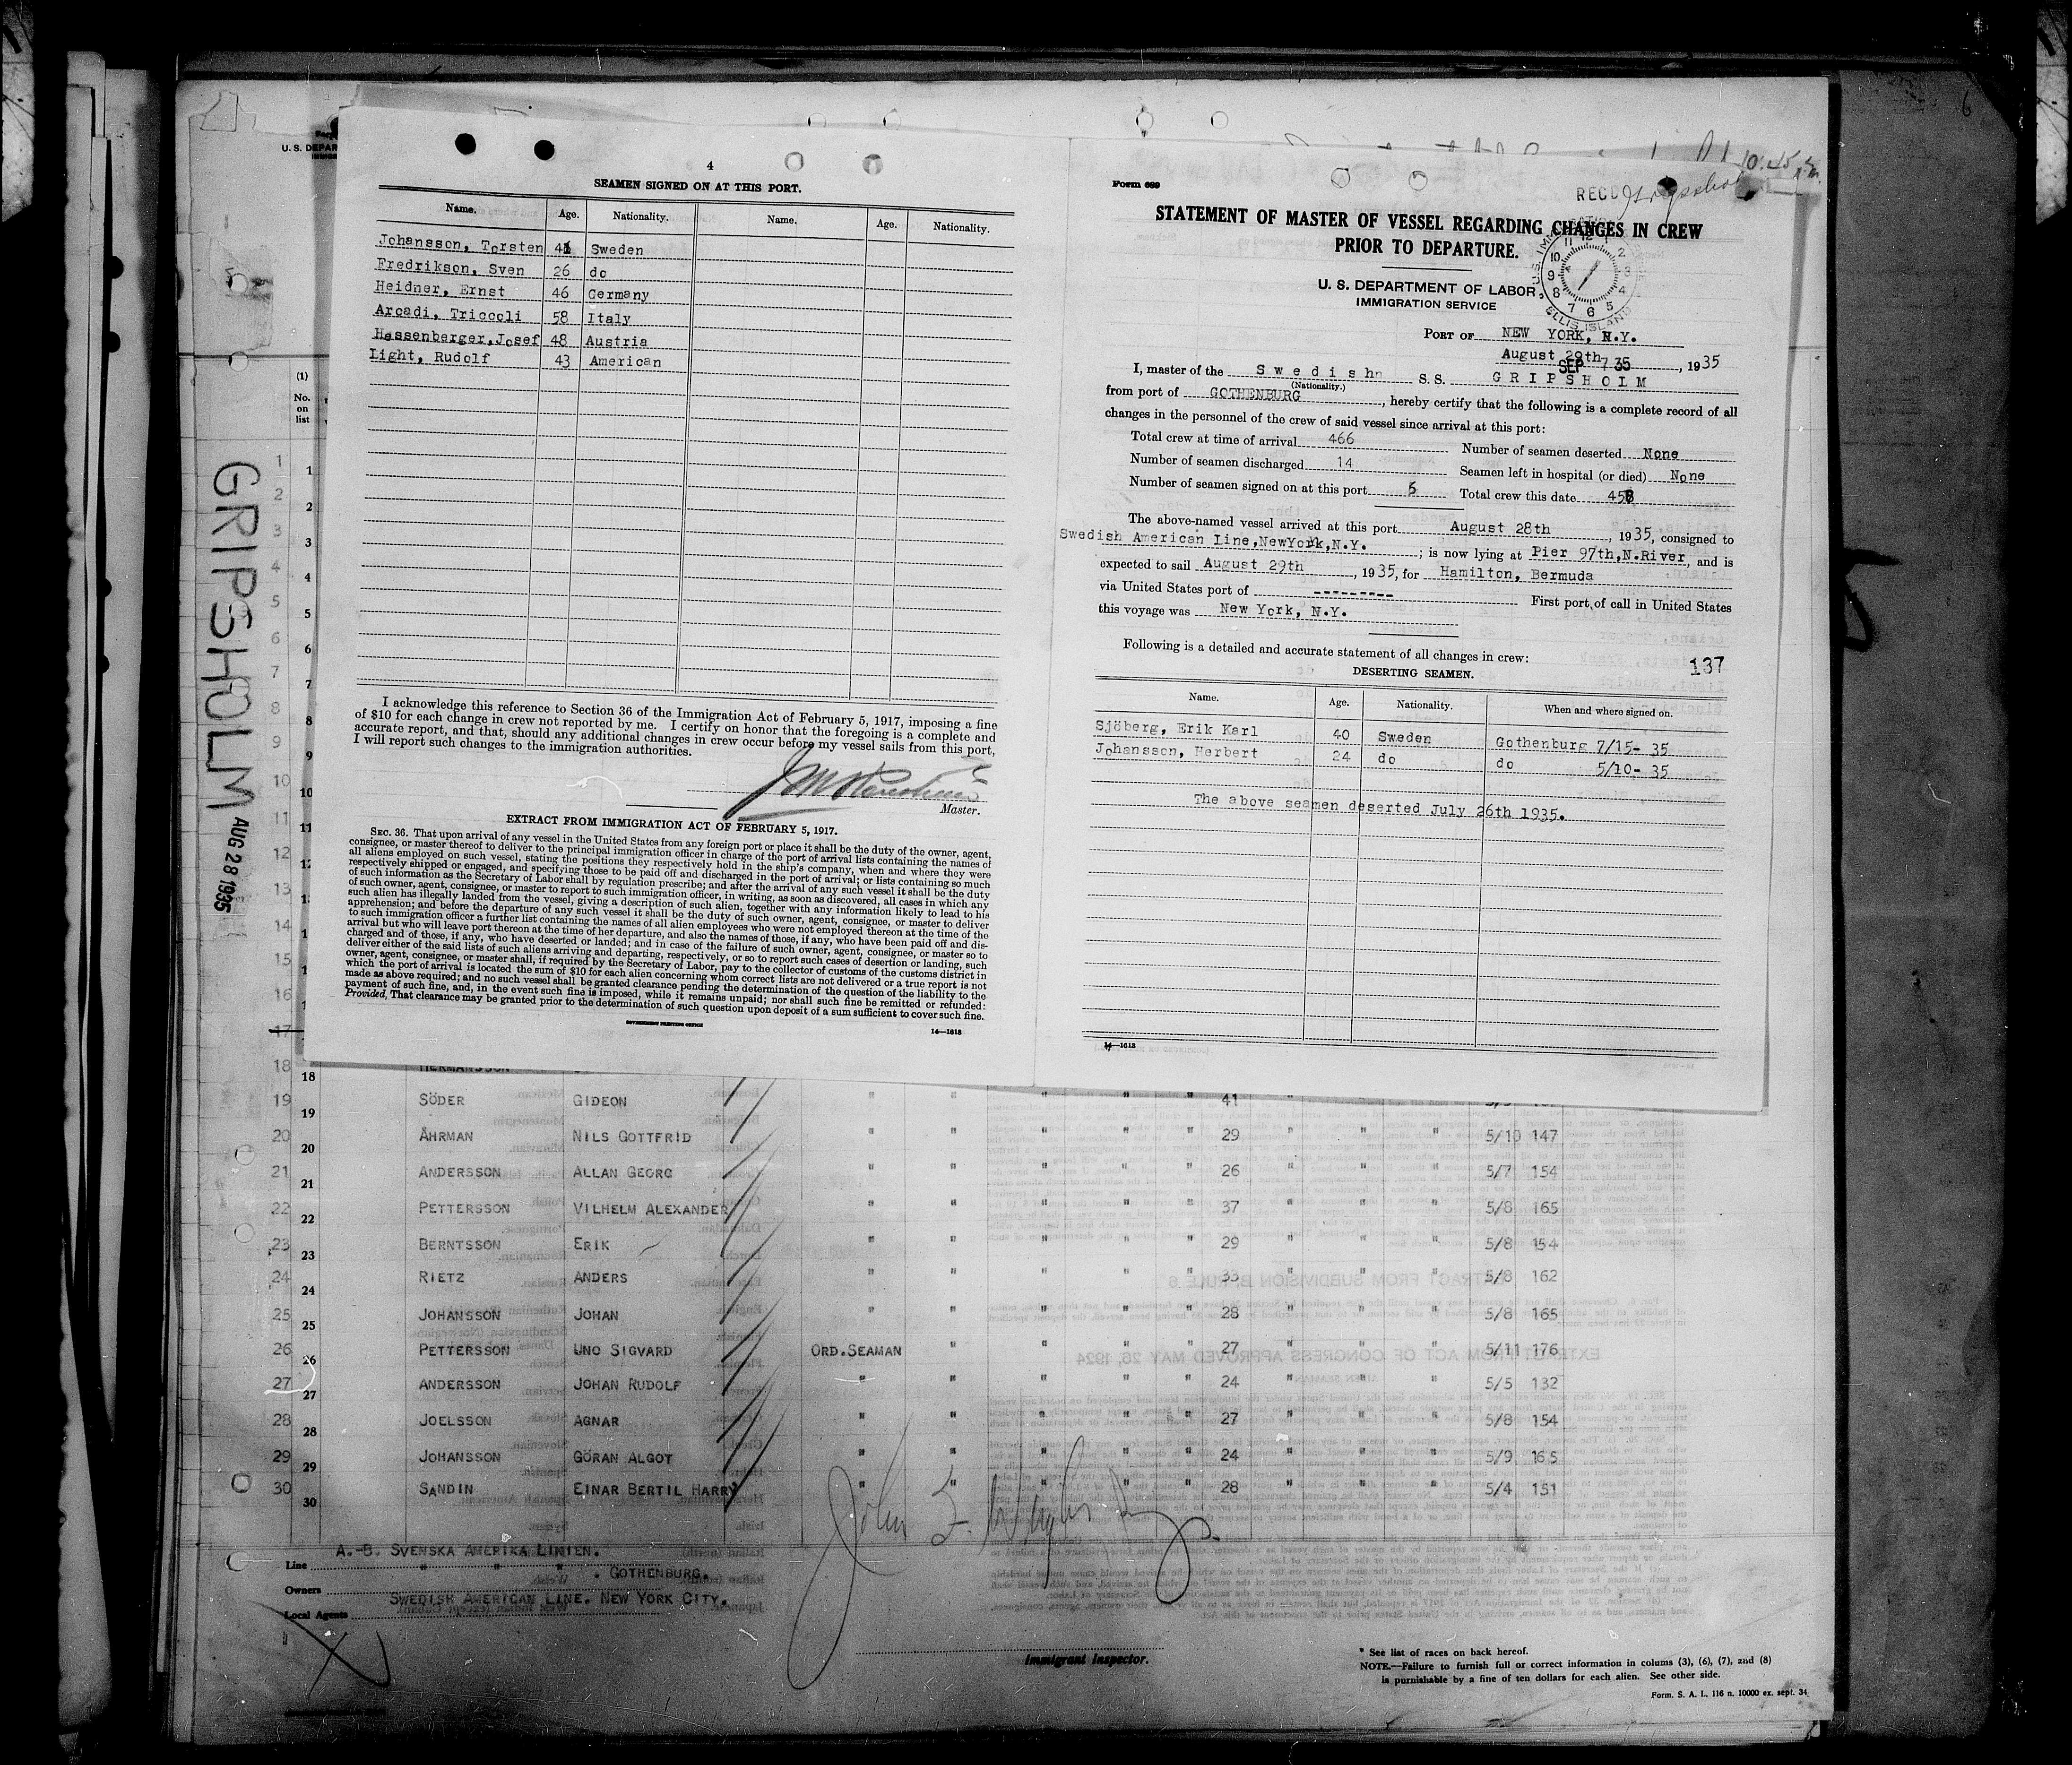 4
SEAMEN SIGNED ON AT THIS PORT.
Name. Age. Nationality. Name. Age. Nationality.
Johansson, Torsten 41 Sweden
Fredrikson, Sven 26 do
Heidner, Ernst 46 Germany
Arcadi, Triccoli 58 Italy
Hessenberger, Josef 48 Austria
Light, Rudolf 43 American
I acknowledge this reference to Section 36 of the Immigration Act of February 5, 1917, imposing a fine
of $10 for each change in crew not reported by me. I certify on honor that the foregoing is a complete and
accurate report, and that, should any additional changes in crew occur before my vessel sails from this port,
I will report such changes to the immigration authorities.
Master.
EXTRACT FROM IMMIGRATION ACT OF FEBRUARY 5, 1917.
SEC. 36. That upon arrival of any vessel in the United States from any foreign port or place it shall be the duty of the owner, agent,
consignee, or master thereof to deliver to the principal immigration officer in charge of the port of arrival lists containing the names of
all aliens employed on such vessel, stating the positions they respectively hold in the ship's company, when and where they were
respectively shipped or engaged, and specifying those to be paid off and discharged in the port of arrival; or lists containing so much
of such information as the Secretary of Labor shall by regulation prescribe; and after the arrival of any such vessel it shall be the duty
of such owner, agent, consignee, or master to report to such immigration officer, in writing, as soon as discovered, all cases in which any
such alien has illegally landed from the vessel, giving a description of such alien, together with any information likely to lead to his
apprehension; and before the departure of any such vessel it shall be the duty of such owner, agent, consignee, or master to deliver
to such immigration officer a further list containing the names of all alien employees who were not employed thereon at the time of the
arrival but who will leave port thereon at the time of her departure, and also the names of those, if any, who have been paid off and dis-
charged and of those, if any, who have deserted or landed; and in case of the failure of such owner, agent, consignee, or master so to
deliver either of the said lists of such aliens arriving and departing, respectively, or so to report such cases of desertion or landing, such
owner, agent, consignee, or master shall, if required by the Secretary of Labor, pay to the collector of customs of the customs district in
which the port of arrival is located the sum of $10 for each alien concerning whom correct lists are not delivered or a true report is not
made as above required; and no such vessel shall be granted clearance pending the determination of the question of the liability to the
payment of such fine, and, in the event such fine is imposed, while it remains unpaid; nor shall such fine be remitted or refunded:
Provided, That clearance may be granted prior to the determination of such question upon deposit of a sum sufficient to cover such fine.
GOVERNMENT PRINTING OFFICE 14—1618
Form 689
RECD Gripsholm
STATEMENT OF MASTER OF VESSEL REGARDING CHANGES IN CREW
PRIOR TO DEPARTURE.
U. S. DEPARTMENT OF LABOR,
IMMIGRATION SERVICE
ELLIS ISLAND
PORT OF NEW YORK, N.Y.
August 29th, 1935
SEP 7 35
I, master of the Swedish S. S. GRIPSHOLM
(Nationality.)
from port of GOTHENBURG, hereby certify that the following is a complete record of all
changes in the personnel of the crew of said vessel since arrival at this port:
Total crew at time of arrival 466 Number of seamen deserted None
Number of seamen discharged 14 Seamen left in hospital (or died) None
Number of seamen signed on at this port Total crew this date
The above-named vessel arrived at this port August 28th, 1935, consigned to
Swedish American Line, NewYork, N.Y.; is now lying at Pier 97th, N.River, and is
expected to sail August 29th, 1935, for Hamilton, Bermuda
via United States port of --------- First port of call in United States
this voyage was New York, N.Y.
Following is a detailed and accurate statement of all changes in crew:
137
DESERTING SEAMEN.
Name. Age. Nationality. When and where signed on.
Sjöberg, Erik Karl 40 Sweden Gothenburg 7/15- 35
Johansson, Herbert 24 do do 5/10- 35
The above seamen deserted July 26th 1935.
14—1618
U. S. DEPAR
(1)
No.
on
list
GRIPSHOLM AUG 28 1935
1 1
2 2
3 3
4 4
5 5
6 6
7 7
8 8
9 9
10 10
11 11
12
13
14
15
16
17
18 18 HERMANSSON
19 19 SÖDER GIDEON " " " " " 41 " " "
20 20 ÅHRMAN NILS GOTTFRID " " " " " 29 " " " 5/10 147
21 21 ANDERSSON ALLAN GEORG " " " " " 26 " " " 5/7 154
22 22 PETTERSSON VILHELM ALEXANDER " " " " " 37 " " " 5/8 165
23 23 BERNTSSON ERIK " " " " " 29 " " " 5/8 154
24 24 RIETZ ANDERS " " " " " 33 " " " 5/8 162
25 25 JOHANSSON JOHAN " " " " " 28 " " " 5/8 165
26 26 PETTERSSON UNO SIGVARD ORD.SEAMAN " " " " 27 " " " 5/11 176
27 27 ANDERSSON JOHAN RUDOLF " " " " " 24 " " " 5/5 132
28 28 JOELSSON AGNAR " " " " " 27 " " " 5/8 154
29 29 JOHANSSON GÖRAN ALGOT " " " " " 24 " " " 5/9 165
30 30 SANDIN EINAR BERTIL HARRY " " " " " 28 " " " 5/4 151
Line A.-B. SVENSKA AMERIKA LINIEN.
Owners " " " . GOTHENBURG.
Local Agents SWEDISH AMERICAN LINE. NEW YORK CITY.
Immigrant Inspector.
* See list of races on back hereof.
NOTE.—Failure to furnish full or correct information in colums (3), (6), (7), and (8)
is punishable by a fine of ten dollars for each alien. See other side.
Form. S. A. L. 116 n. 10000 ex. sept. 34